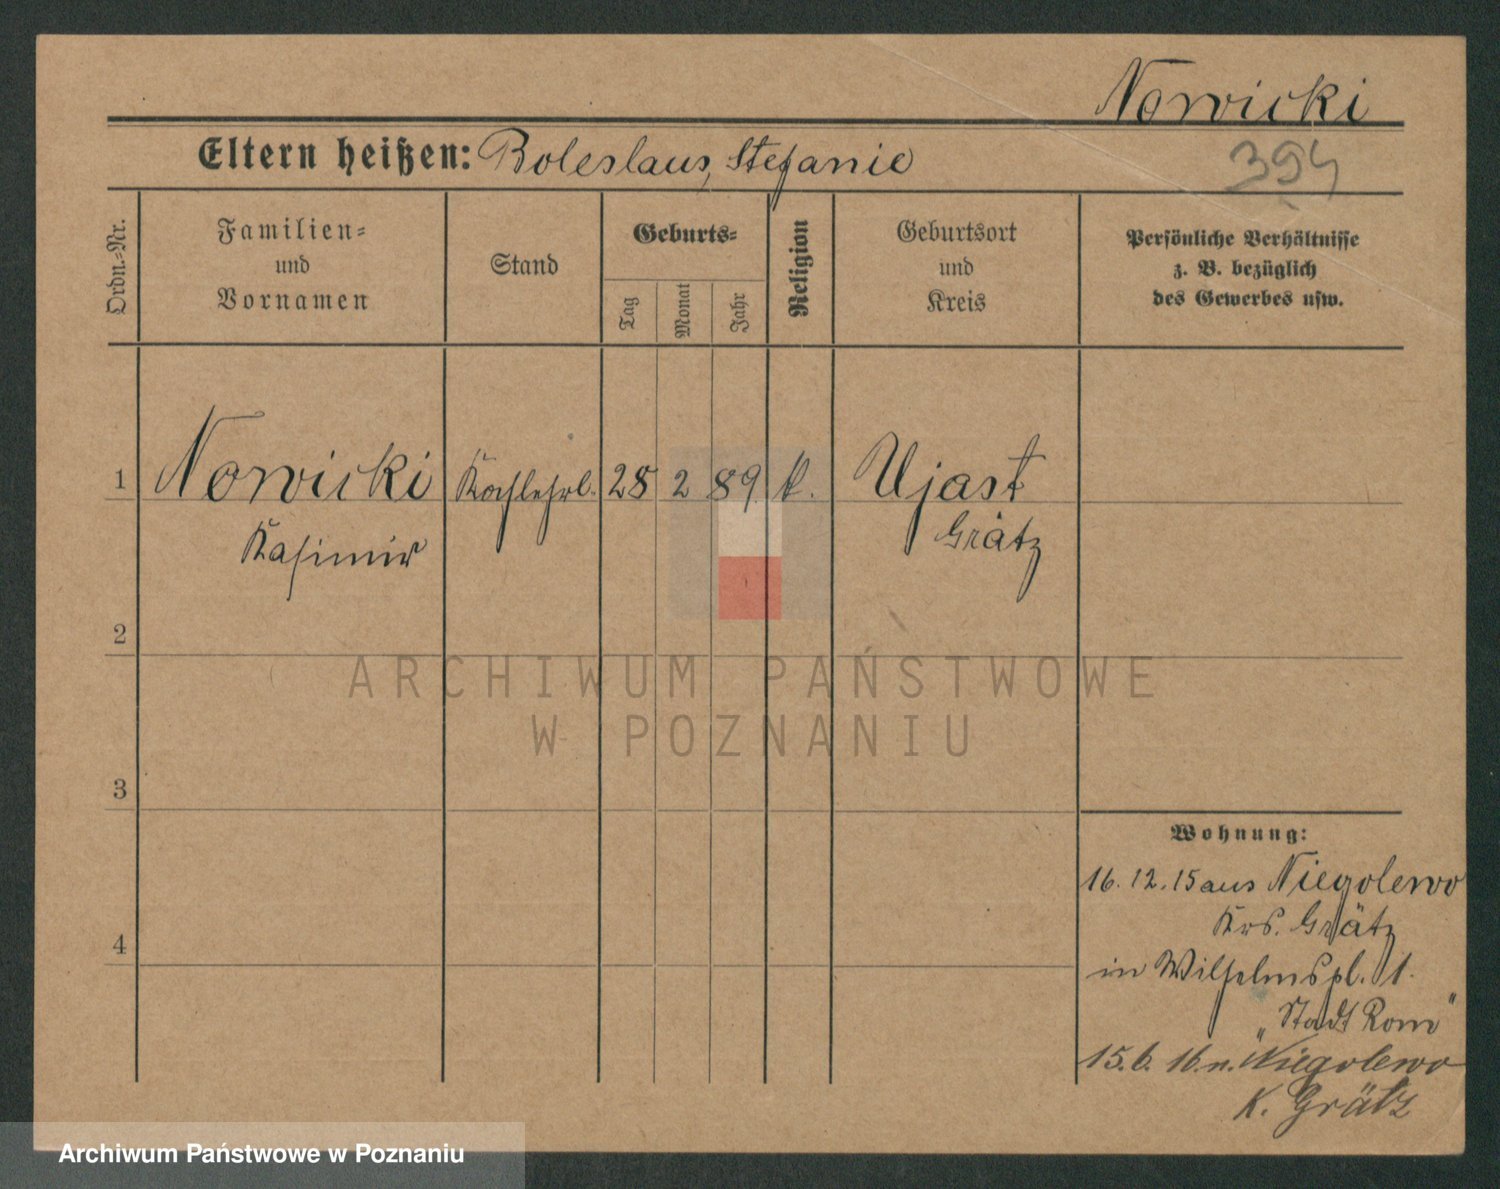 Nowicki
Eltern heißen: Boleslaus, Stefanie
394
Ordn.=Nr.
Familien=
und
Vornamen
Stand
Geburts=
Tag
Monat
Jahr
Religion
Geburtsort
und
Kreis
Persönliche Verhältnisse
z. B. bezüglich
des Gewerbes usw.
1 Nowicki Kochlehrl. 28 2 89 k. Ujast
Kasimir Grätz
2
ARCHIWUM PAŃSTWOWE
W POZNANIU
3
Wohnung:
16. 12. 15 aus Niegolewo
Krs. Grätz
4
in Wilhelmspl. 1.
„Stadt Rom"
15. 6. 16. n. Niegolewo
K. Grätz
Archiwum Państwowe w Poznaniu